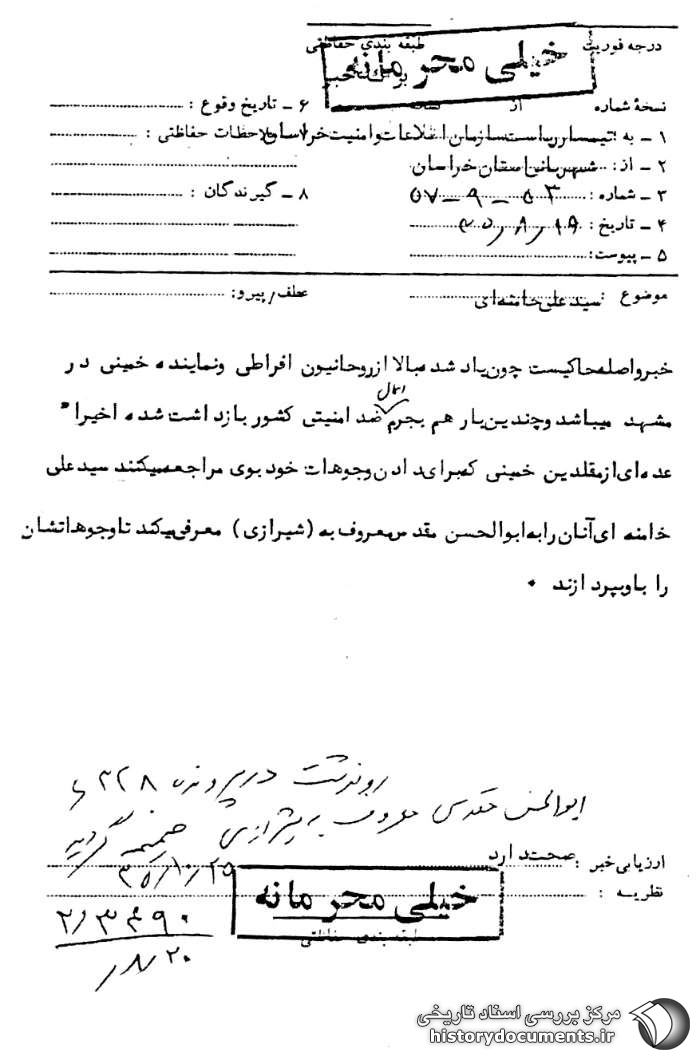 درجه فوریت
طبقه بندی حفاظتی
خیلی محرمانه
برگ خبر
نسخهٔ شماره از نسخه
۶ ـ تاریخ وقوع :
۱ ـ به : تیمسار ریاست سازمان اطلاعات و امنیت خراسان
۷ ـ ملاحظات حفاظتی :
۲ ـ از: شهربانی استان خراسان
۳ ـ شماره : ۵۳ ـ ۹ ـ ۵۷
۸ ـ گیرندگان :
۴ ـ تاریخ :
۵ ـ پیوست:
موضوع : سید علی خامنه‌ای
عطف/پیرو:
خبر واصله حاکیست چون یاد شده بالا از روحانیون افراطی و نماینده خمینی در
مشهد میباشد و چندین بار هم بجرم اعمال ضد امنیتی کشور بازداشت شده اخیرا"
عده‌ای از مقلدین خمینی که برای دادن وجوهات خود بوی مراجعه میکنند سید علی
خامنه ای آنان را به ابوالحسن مقدس معروف به (شیرازی) معرفی میکند تا وجوهاتشان
را باو بپردازند .
رونوشت در پرونده ۳۲۸
ابوالحسن مقدسی معروف به شیرازی ضمیمه گردید
ارزیابی خبر : صحت دارد
۳۵/۱۰/۲۵
نظریه :
خیلی محرمانه
طبقه بندی حفاظتی
۲/۳۴۹۰
۸/۲۰
مرکز بررسی اسناد تاریخی
historydocuments.ir